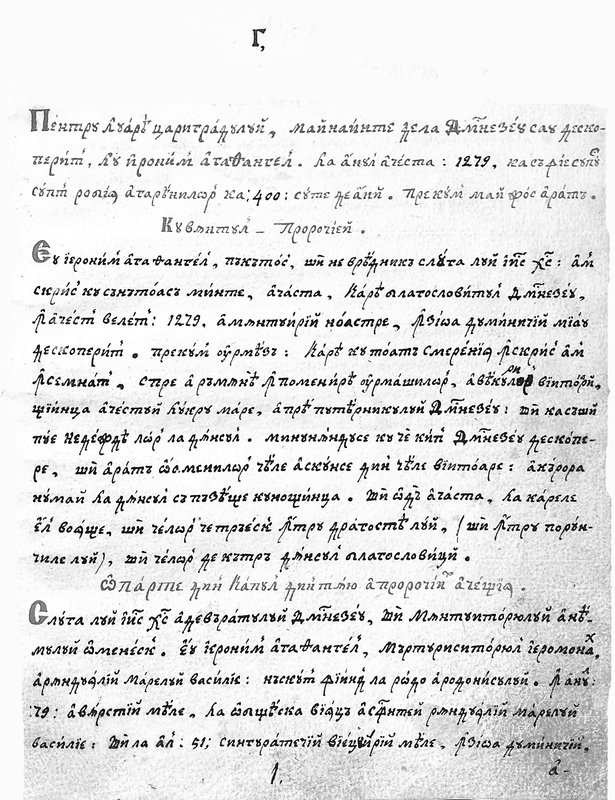 Г҃,
Пентрꙋ Лꙋарѣ Цариградꙋлꙋй, май наинте дела Дмⷩ҇незеꙋ сау деско-
перит, кꙋ Иероним агаѳангел. Ла анꙋл ачеста: 1279. ка съ фіе сꙋпꙋс
сꙋпт росія агаренилор ка: 400: сꙋте де ани. Прекꙋм май жос аратъ.
Кꙋвѫнтꙋл – Пророчіей.
Еꙋ Іероним агаѳангел, пъкътос, ши невреднікъ слꙋга лꙋй Іи҃с Хс҃: ам
скрис кꙋ сънътоасъ минте, ачаста, Каре благословитꙋл Дмⷩ҇незеꙋ,
ꙟ ачест велет: 1279. а мѫнтꙋирій ноастре, ꙟ зіоа дꙋминичій мі ау
дескоперит. прекꙋм ꙋрмѣзъ: Каре кꙋ тоатъ смереніѧ ꙟскрис ам
ꙟсемнат, спре а ръмѫне ꙟ поменире ꙋрмашилор, а вѣкꙋрилор виитоарй,
щіинца ачестꙋй лꙋкрꙋ маре, а прѣ пꙋтерникꙋлꙋй Дмⷩ҇незеꙋ: ши ка съ ший
пꙋе недеждѣ лор ла дѫнсꙋл. минꙋнѫндꙋсе кꙋ че кип Дмⷩ҇незеꙋ дескопе-
ре, ши аратъ ѡаменилор челе аскꙋнсе дин челе виитоаре: акърора
нꙋмай ла дѫнсꙋл съ пъзеще кꙋнощинца. Ши ѡдъ ачаста, ла кареле
ел вояще, ши челор че тръеск ꙟтрꙋ драгостѣ лꙋй, (ши ꙟтрꙋ порꙋн-
чиле лꙋй), ши челор де кътръ дѫнсꙋл благословици.
Ѡ парте дин Капꙋл дин тѫю а пророчій ачещіѧ.
Слꙋга лꙋй Іи҃с Хс҃ адевъратꙋлꙋй Дмⷩ҇незеꙋ, ши Мѫнтꙋиторюлꙋй а нѣ-
мꙋлꙋй ѡменеск. Еꙋ Иероним агаѳангел, Мъртꙋриситорюл іеромонах,
а рѫндꙋелій Марелꙋй Василіе: нъскꙋт фіинд ла родо а родонисꙋлꙋй. ꙟ анꙋ:
:79: а вѫрстій меле, ла ѡбщѣска віацъ а сфинтей рѫндꙋелій марелꙋй
василіе: Ши ла ал: 51: сингꙋратечій віецꙋирій меле, ꙟ зіоа дꙋминичій.
1.
а-